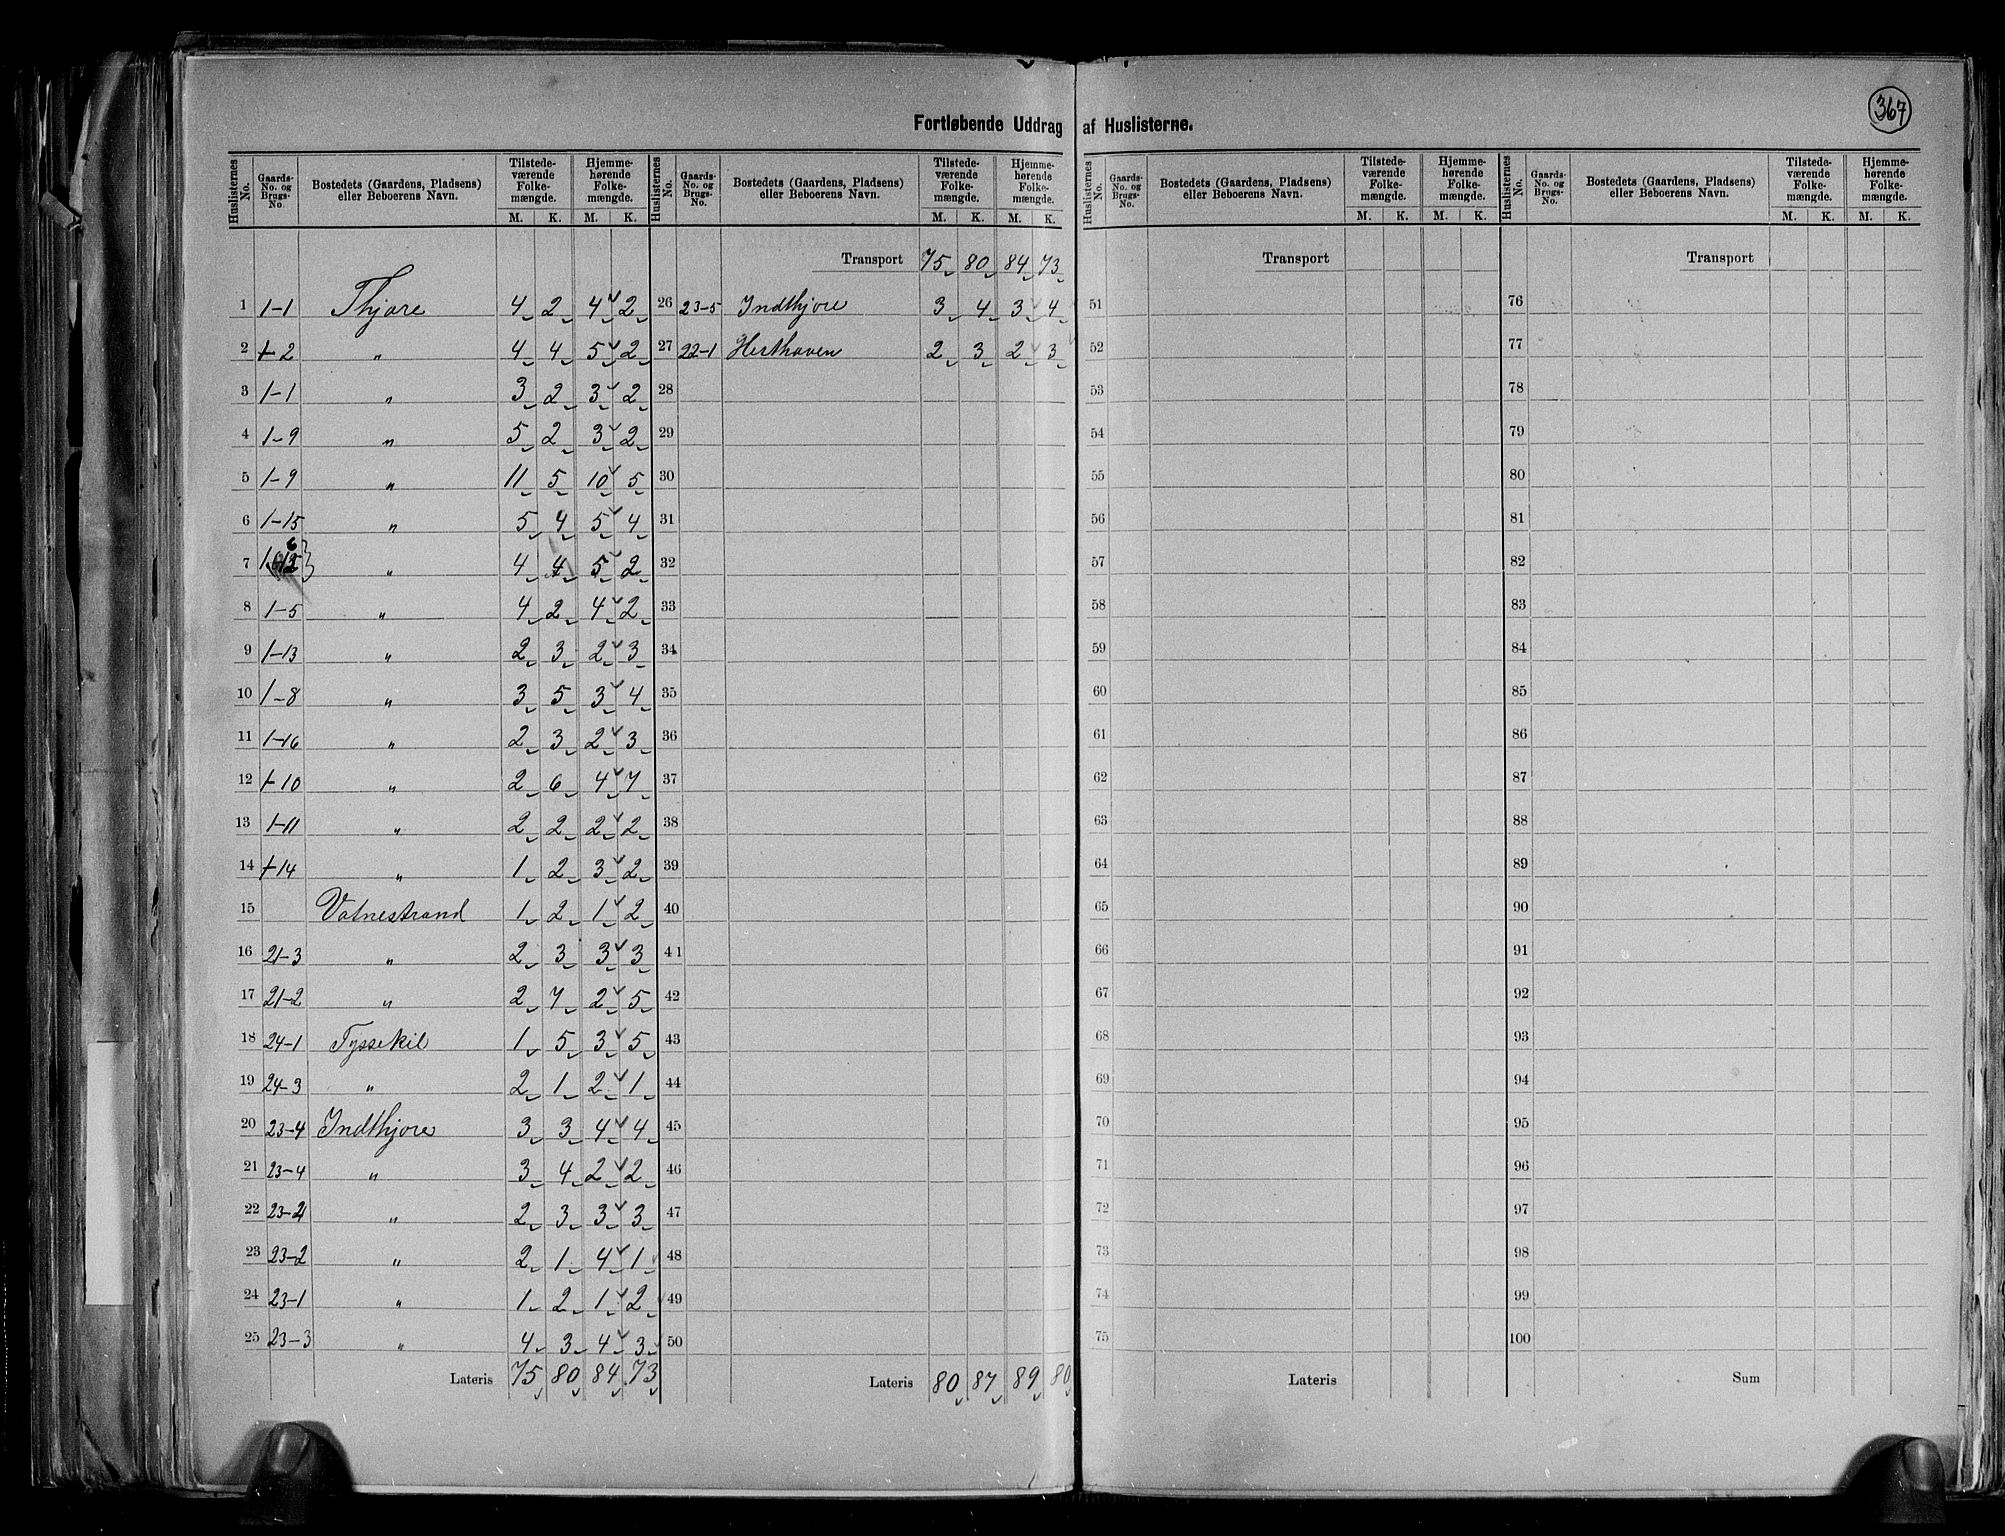 367
Fortløbende Uddrag af Huslisterne.
Huslisternes No. Gaards-No. og Brugs-No. Bostedets (Gaardens, Pladsens) eller Beboerens Navn. Tilstede-værende Folke-mængde. M. K. Hjemme-hørende Folke-mængde. M. K.
1 1-1 Thjøre 4 2 4 2
2 1-2 " 4 4 5 2
3 1-1 " 3 2 3 2
4 1-9 " 5 2 3 2
5 1-9 " 11 5 10 5
6 1-15 " 5 4 5 4
7 " 4 4 5 2
8 1-5 " 4 2 4 2
9 1-13 " 2 3 2 3
10 1-8 " 3 5 3 4
11 1-16 " 2 3 2 3
12 1-10 " 2 6 4 7
13 1-11 " 2 2 2 2
14 1-14 " 1 2 3 2
15 Vatnestrand 1 2 1 2
16 21-3 " 2 3 3 3
17 21-2 " 2 7 2 5
18 24-1 Tyssekil 1 5 3 5
19 24-3 " 2 1 2 1
20 23-4 Indthjore 3 3 4 4
21 23-4 " 3 4 2 2
22 " 2 3 3 3
23 23-2 " 2 1 4 1
24 23-1 " 1 2 1 2
25 23-3 " 4 3 4 3
Lateris 75 80 84 73
Huslisternes No. Gaards-No. og Brugs-No. Bostedets (Gaardens, Pladsens) eller Beboerens Navn. Tilstede-værende Folke-mængde. M. K. Hjemme-hørende Folke-mængde. M. K.
Transport 75 80 84 73
26 23-5 Indthjore 3 4 3 4
27 22-1 Hesthaven 2 3 2 3
28
29
30
31
32
33
34
35
36
37
38
39
40
41
42
43
44
45
46
47
48
49
50
Lateris 80 87 89 80
Huslisternes No. Gaards-No. og Brugs-No. Bostedets (Gaardens, Pladsens) eller Beboerens Navn. Tilstede-værende Folke-mængde. M. K. Hjemme-hørende Folke-mængde. M. K.
Transport
51
52
53
54
55
56
57
58
59
60
61
62
63
64
65
66
67
68
69
70
71
72
73
74
75
Lateris
Huslisternes No. Gaards-No. og Brugs-No. Bostedets (Gaardens, Pladsens) eller Beboerens Navn. Tilstede-værende Folke-mængde. M. K. Hjemme-hørende Folke-mængde. M. K.
Transport
76
77
78
79
80
81
82
83
84
85
86
87
88
89
90
91
92
93
94
95
96
97
98
99
100
Sum